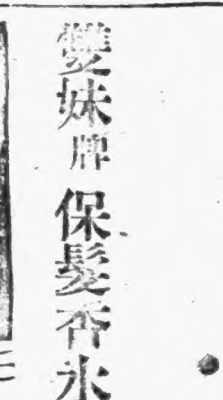 雙妹牌保髮香水